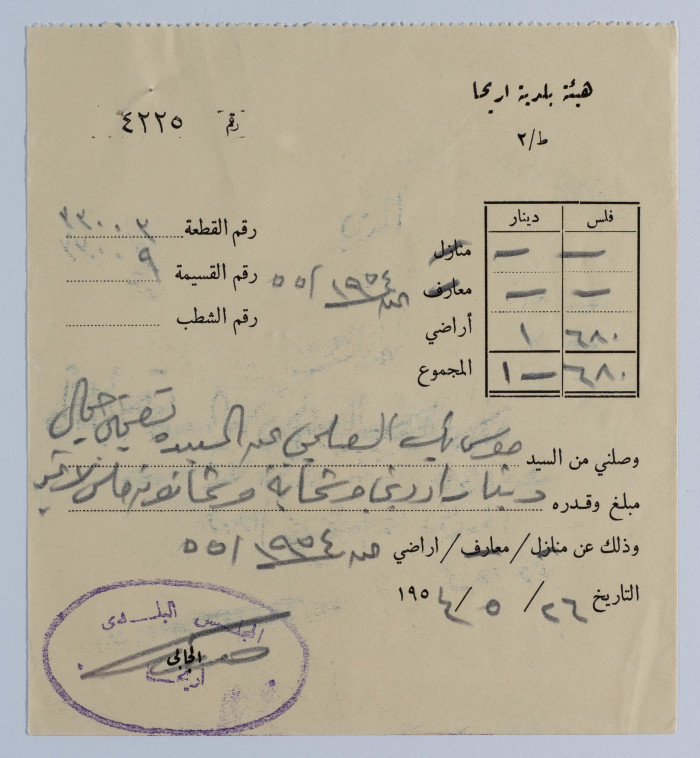 هيئة بلدية اريحا
ط/٢
رقم ٤٢٢٥
فلس دينار
منازل — —
معارف — —
أراضي ١ ٦٨٠
المجموع ١ — ٦٨٠
رقم القطعة ٣٣٠٠٣
رقم القسيمة ٩
رقم الشطب
عن ١٩٥٤/٥٥
وصلني من السيد موسى بك العلمي عن السيده
مبلغ وقدره دينار اردني وستماية وثمانون فلس لا غير
وذلك عن منازل/معارف/اراضي عن ١٩٥٤/٥٥
التاريخ ٢٦/٥/١٩٥٤
المجلس البلدي
الجابي
اريحا